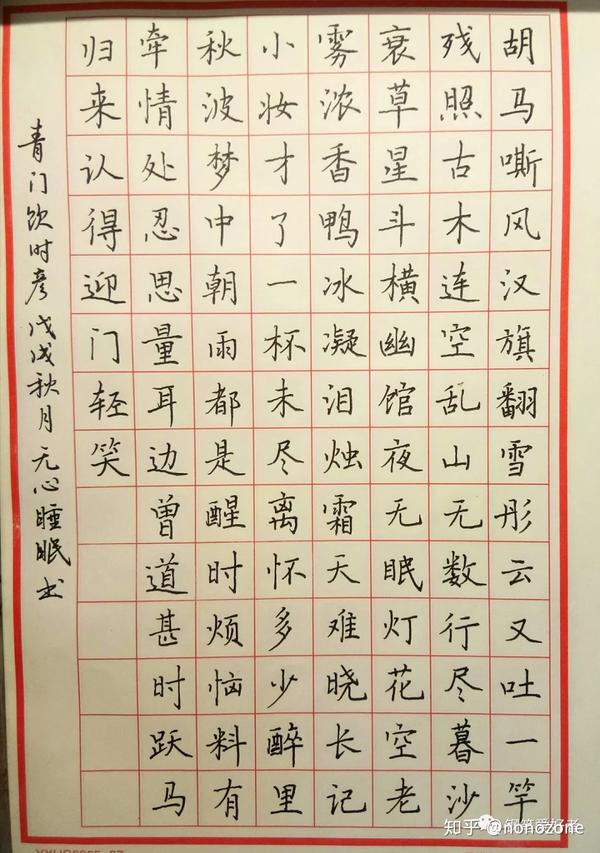 胡马嘶风汉旗翻雪彤云又吐一竿
残照古木连空乱山无数行尽暮沙
衰草星斗横幽馆夜无眠灯花空老
雾浓香鸭冰凝泪烛霜天难晓长记
小妆才了一杯未尽离怀多少醉里
秋波梦中朝雨都是醒时烦恼料有
牵情处忍思量耳边曾道甚时跃马
归来认得迎门轻笑
青门饮时彦戊戌秋月无心睡眠书
钢笔爱好者
知乎 @nonozone